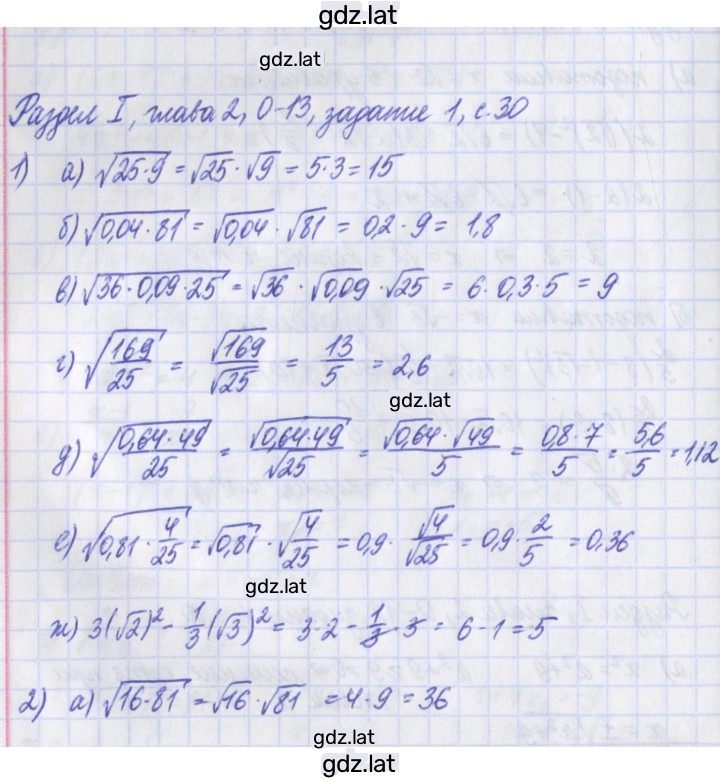 gdz.lat
gdz.lat
Раздел I, глава 2, 0-13, задание 1, с.30
1) а) √(25·9) = √25 · √9 = 5·3 = 15
б) √(0,04·81) = √0,04 · √81 = 0,2 · 9 = 1,8
в) √(36·0,09·25) = √36 · √0,09 · √25 = 6·0,3·5 = 9
г) √(169/25) = √169/√25 = 13/5 = 2,6
gdz.lat
д) √(0,64·49/25) = √(0,64·49)/√25 = √0,64·√49/5 = 0,8·7/5 = 5,6/5 = 1,12
е) √(0,81·4/25) = √0,81 · √(4/25) = 0,9 · √4/√25 = 0,9 · 2/5 = 0,36
gdz.lat
ж) 3(√2)² - 1/3(√3)² = 3·2 - 1/3·3 = 6-1 = 5
2) а) √(16·81) = √16 · √81 = 4·9 = 36
gdz.lat
gdz.lat